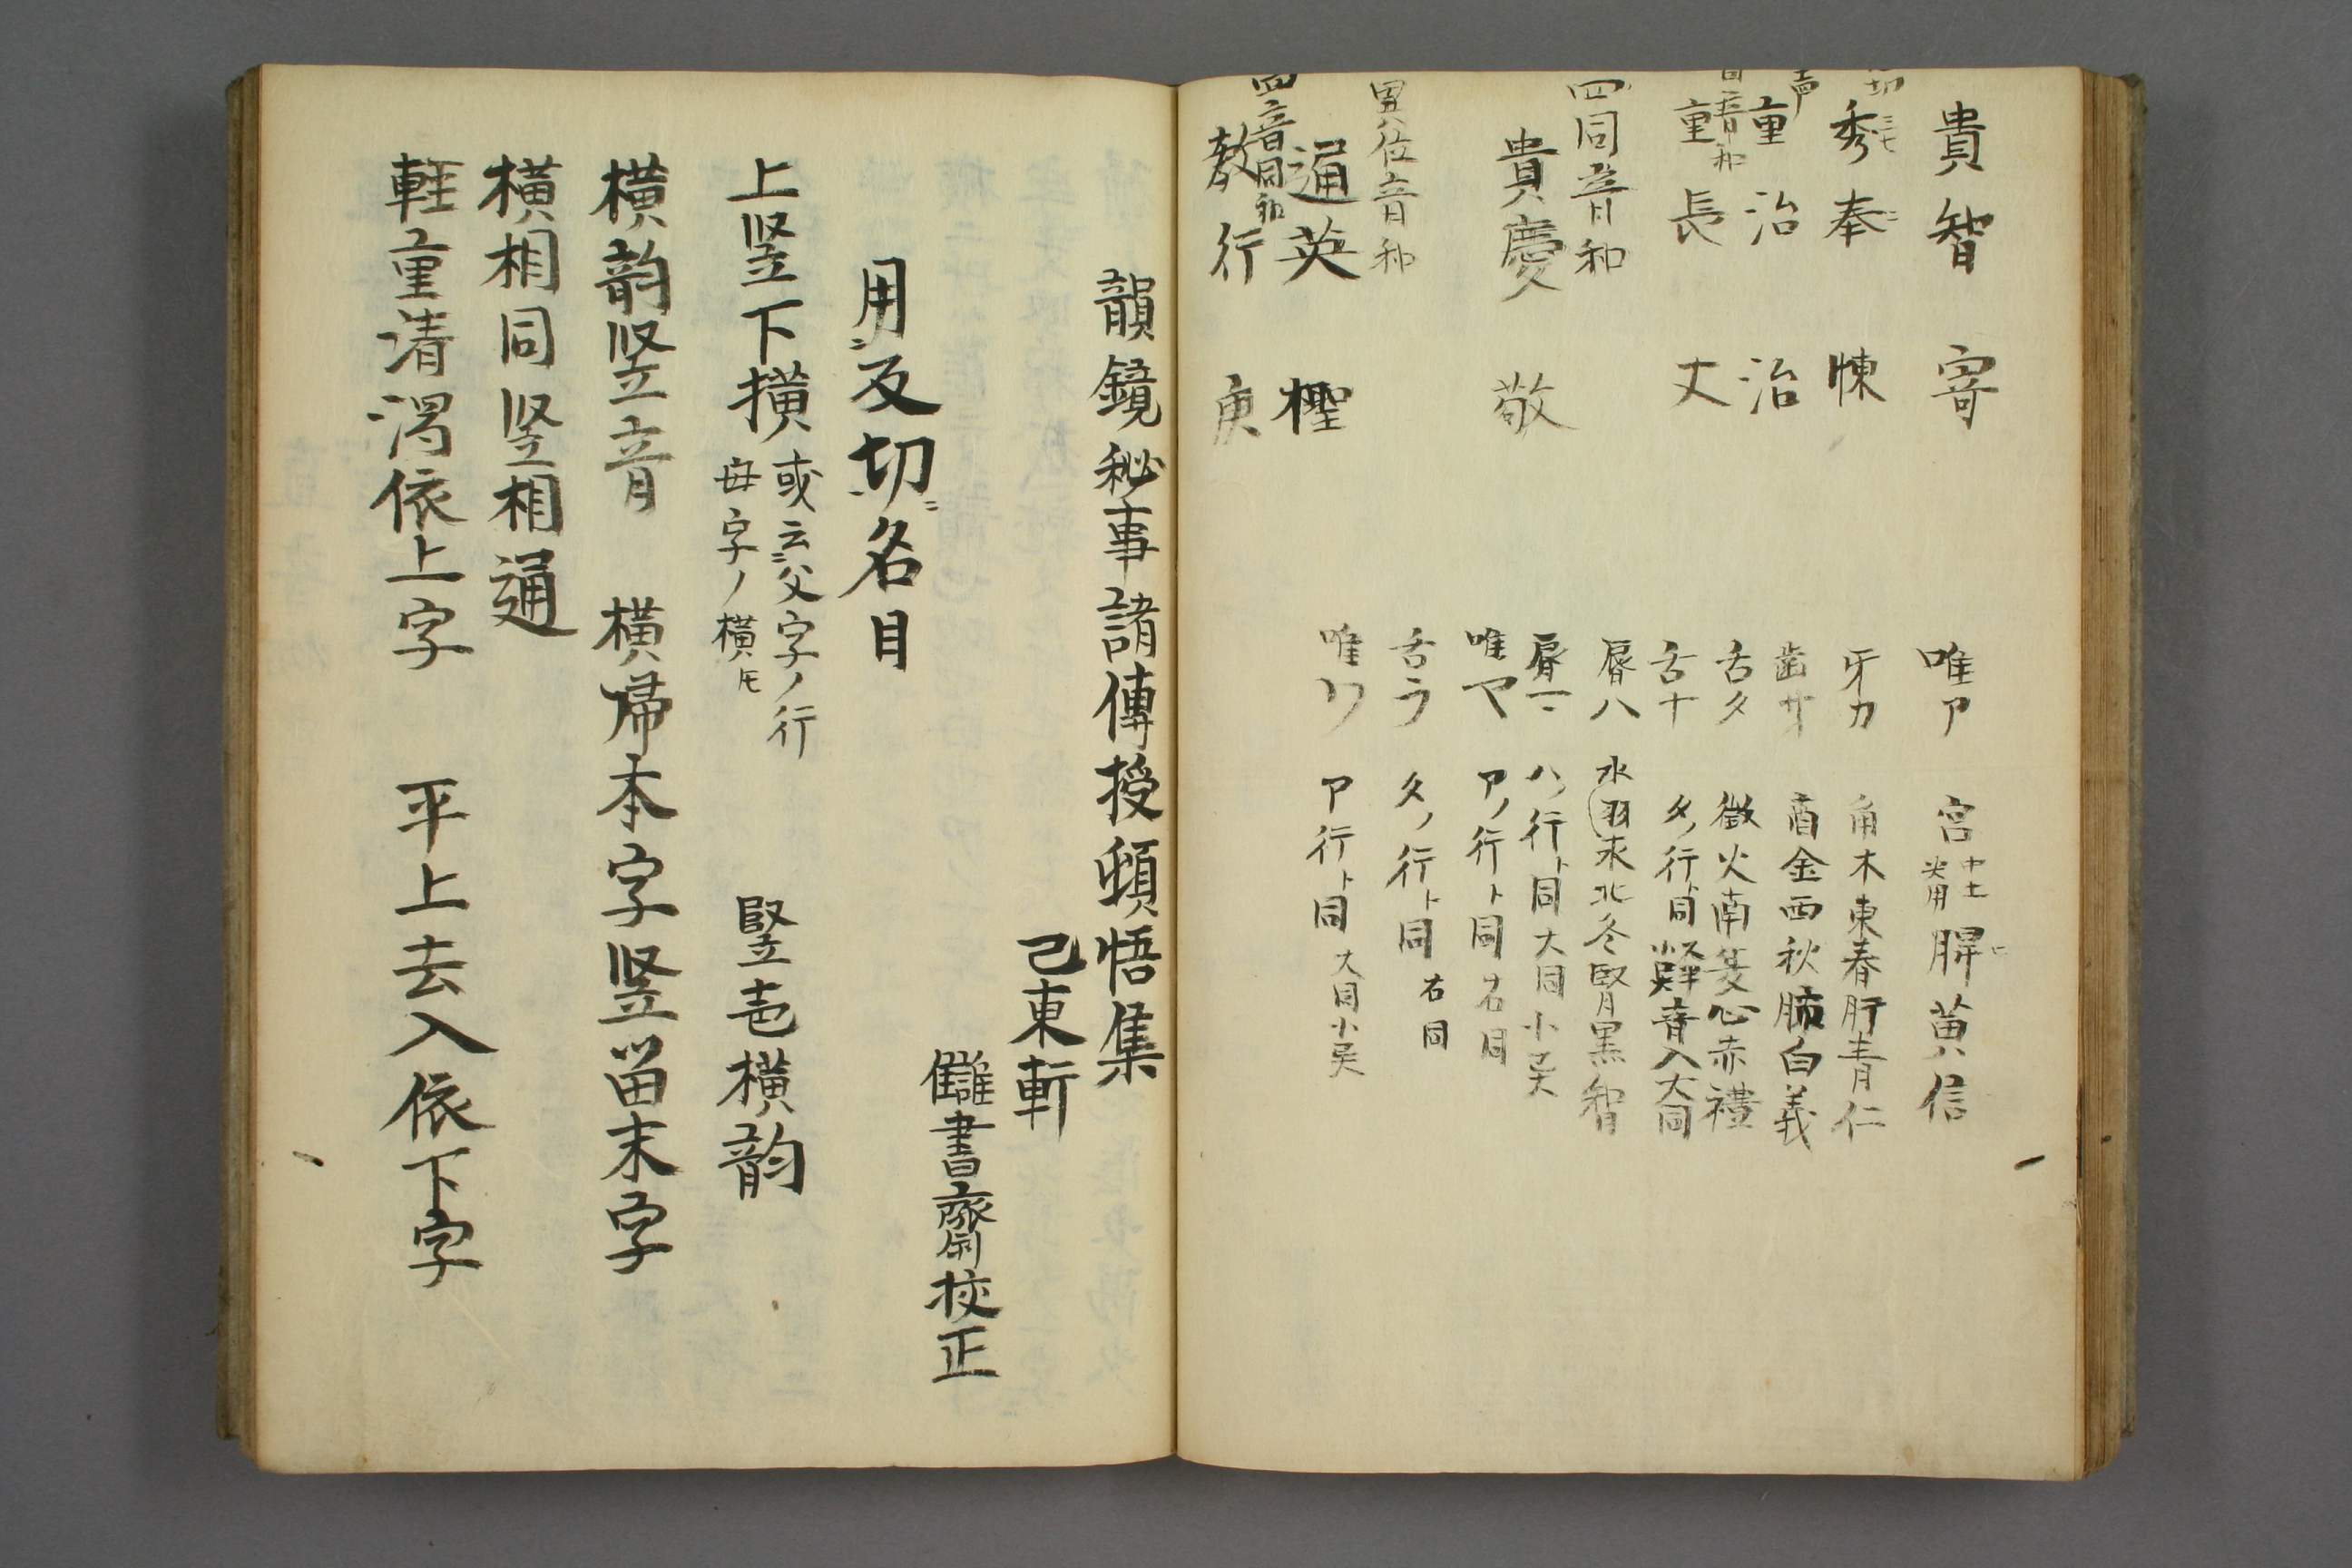 貴智 寄
秀奉 悚
重治 治
重長 丈
四同音和
貴慶 敬
異位音和
通英 樫
四音同和
教行 庚
唯ア 宮 中土 脾黄信
牙カ 角木東春肝青仁
歯サ 商金西秋肺白義
舌タ 徴火南夏心赤禮
舌ナ タノ行ト同
唇ハ 水羽水北冬腎黒智
唇マ ハノ行ト同 大同小異
唯ヤ アノ行ト同 右同
舌ラ タノ行ト同 右同
唯ワ ア行ト同 大同小異
韻鏡秘事諸傳授頓悟集
己東軒
讎書齋校正
用反切名目
上竖下横 或云父字ノ行 母字ノ横トモ 竪壱横韵
横韵竖音 横帰本字竖留末字
横相同竖相通
軽重清濁依上字 平上去入依下字